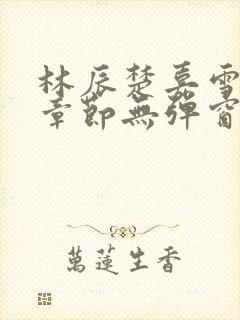 林辰楚嘉雪
章節無彈窗
萬蓮生香